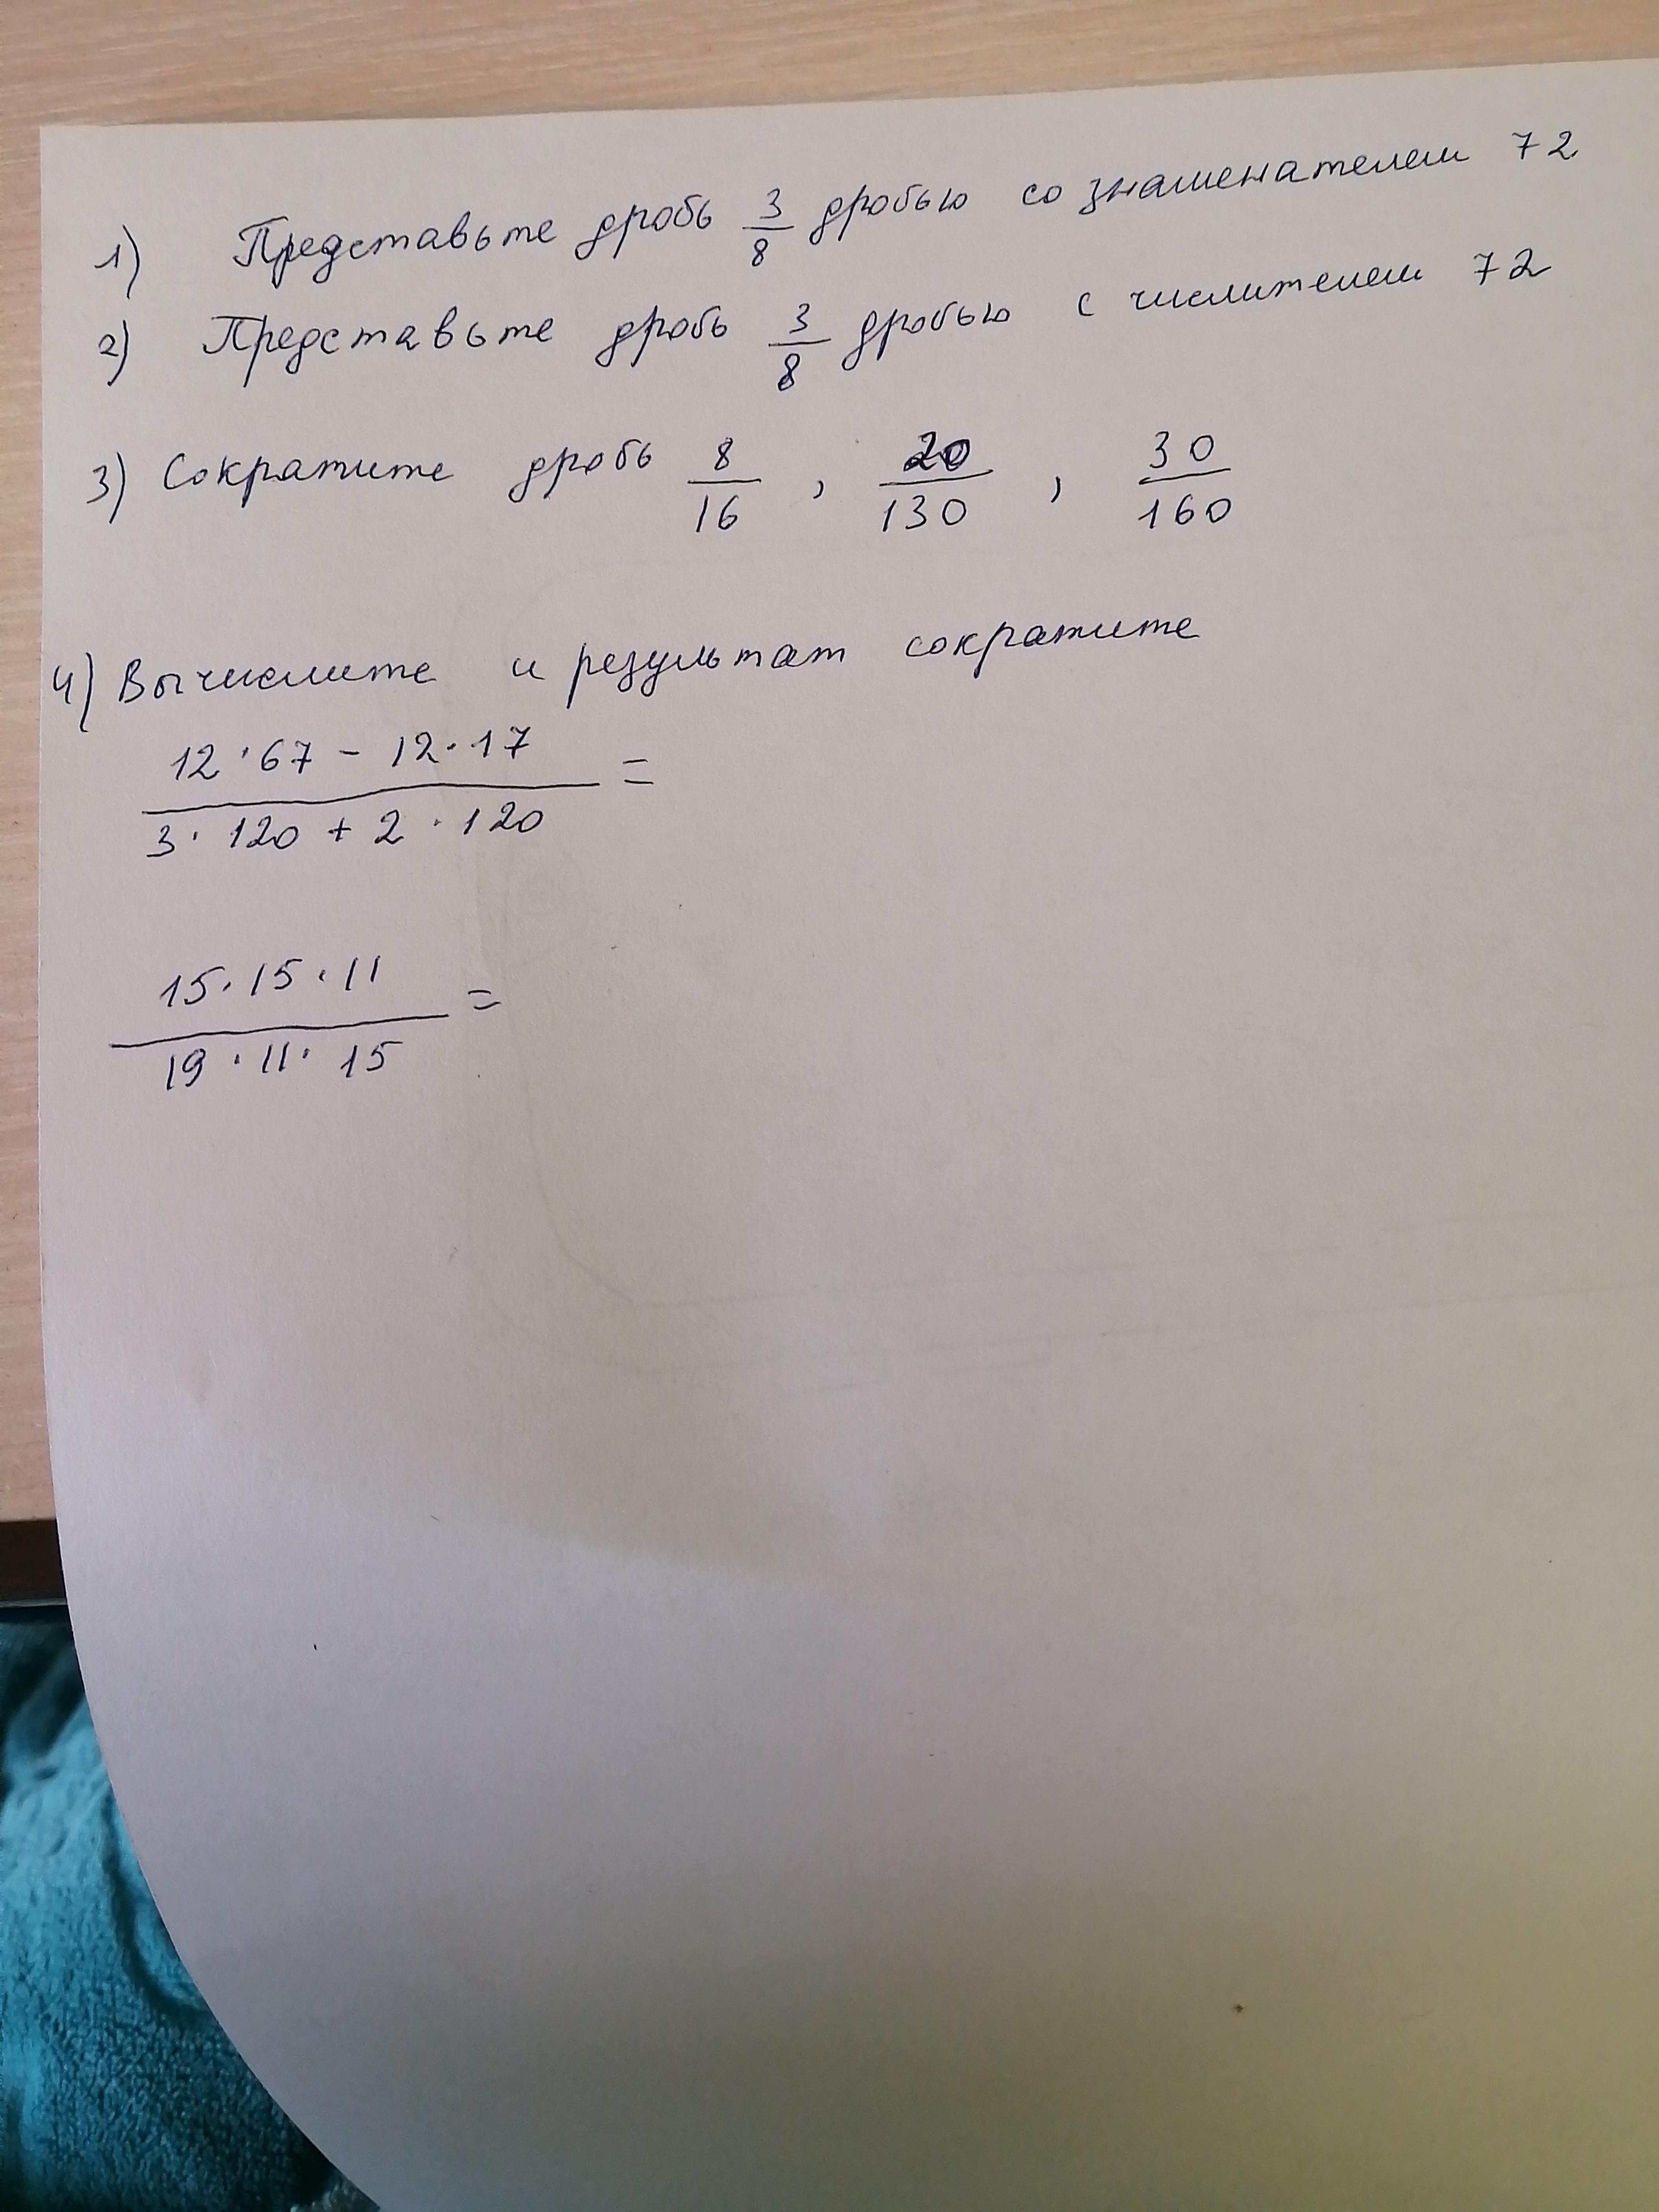 1) Представьте дробь 3/8 дробью со знаменателем 72
2) Представьте дробь 3/8 дробью с числителем 72
3) Сократите дробь 8/16 , 20/130 , 30/160
4) Вычислите и результат сократите
12·67 - 12·17
3·120 + 2·120 =
15·15·11
19·11·15 =